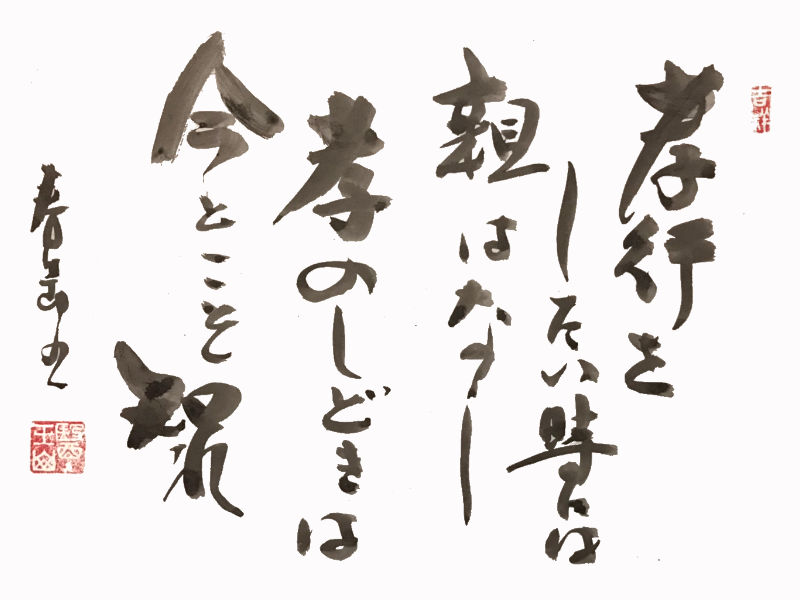 吉祥
孝行を
したい時には
親はなし
孝のしどきは
今とこそ知れ